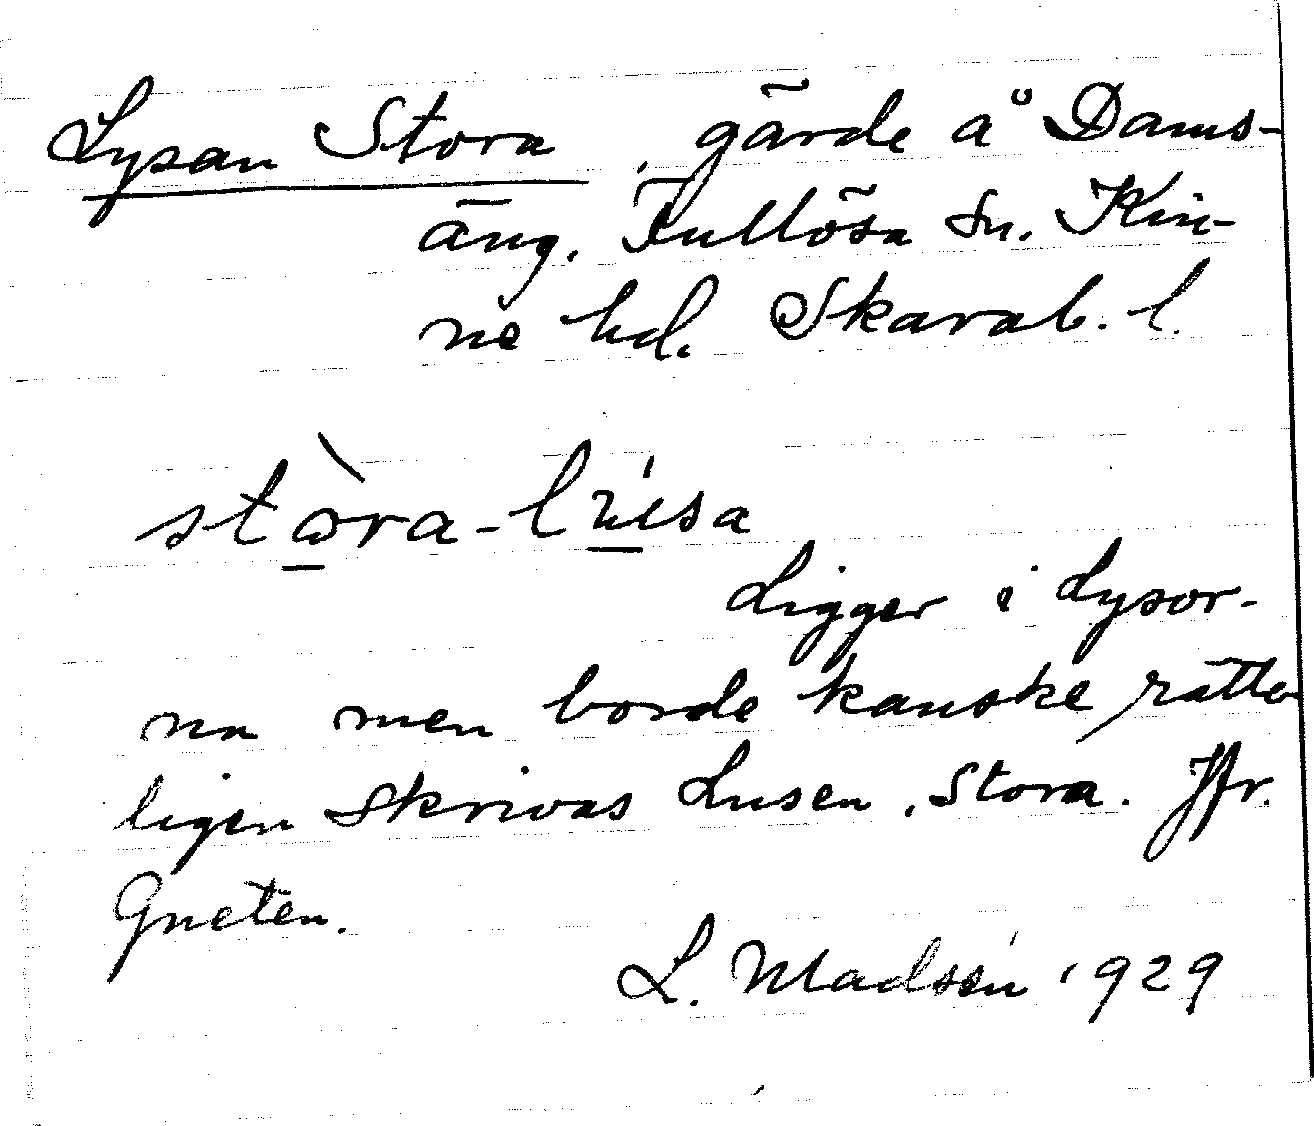 Lysan Stora, gärde å Dams-
äng. Fullösa Sn. Kin-
ne hd. Skarab. l.
stòra-lúsa
Ligger i Lysor-
na men borde kanske rätte
ligen skrivas Lusen, Stora. Jfr.
Gneten.
L. Madsén 1929